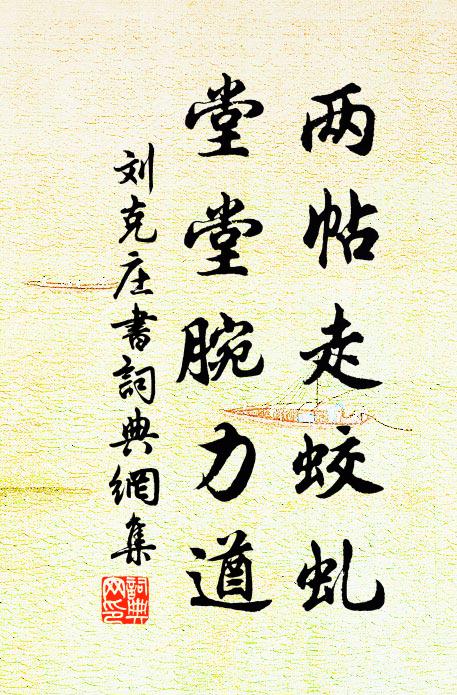 两帖走蛟虬
堂堂腕力遒
刘克庄書詞典網集
詞典网印